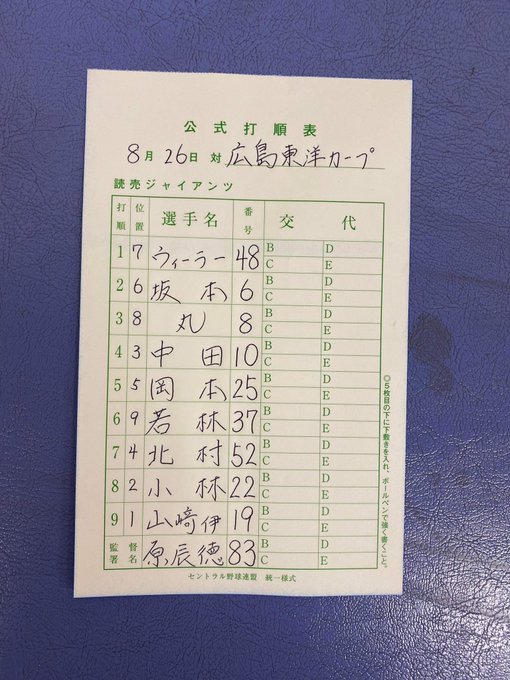 公式打順表
8月26日 対 広島東洋カープ
読売ジャイアンツ
打順 位置 選手名 番号 交代
1 7 ウィーラー 48 B D C E
2 6 坂本 6 B D C E
3 8 丸 8 B D C E
4 3 中田 10 B D C E
5 5 岡本 25 B D C E
6 9 若林 37 B D C E
7 4 北村 52 B D C E
8 2 小林 22 B D C E
9 1 山﨑伊 19 B D C E
監督署名 原辰徳 83 B D C E
セントラル野球連盟 統一様式
◎5枚目の下に下敷きを入れ、ボールペンで強く書くこと。